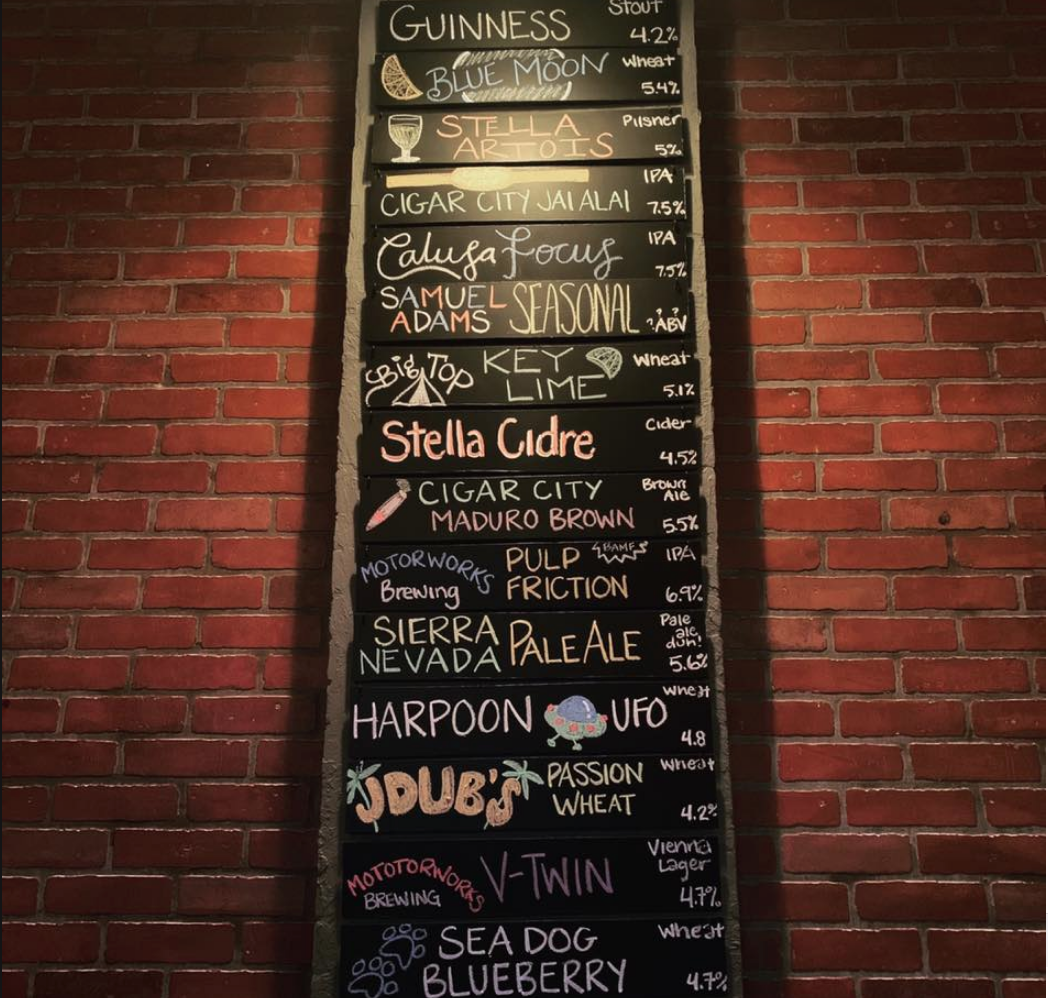 GUINNESS Stout
4.2%
BLUE MOON Wheat
5.4%
STELLA Pilsner
ARTOIS 5%
IPA
CIGAR CITY JAI ALAI 7.5%
Calusa Focus IPA
7.5%
SAMUEL SEASONAL
ADAMS ?.? ABV
Big Top KEY Wheat
LIME 5.1%
Stella Cidre Cider
4.5%
CIGAR CITY Brown
Ale
MADURO BROWN 5.5%
MOTORWORKS PULP BAMF IPA
Brewing FRICTION 6.9%
SIERRA PALE ALE Pale
ale
duh!
NEVADA 5.6%
HARPOON UFO Wheat
4.8
JDUB'S PASSION Wheat
WHEAT 4.2%
MOTOTORWORKS V-TWIN Vienna
Lager
BREWING 4.7%
SEA DOG Wheat
BLUEBERRY 4.7%